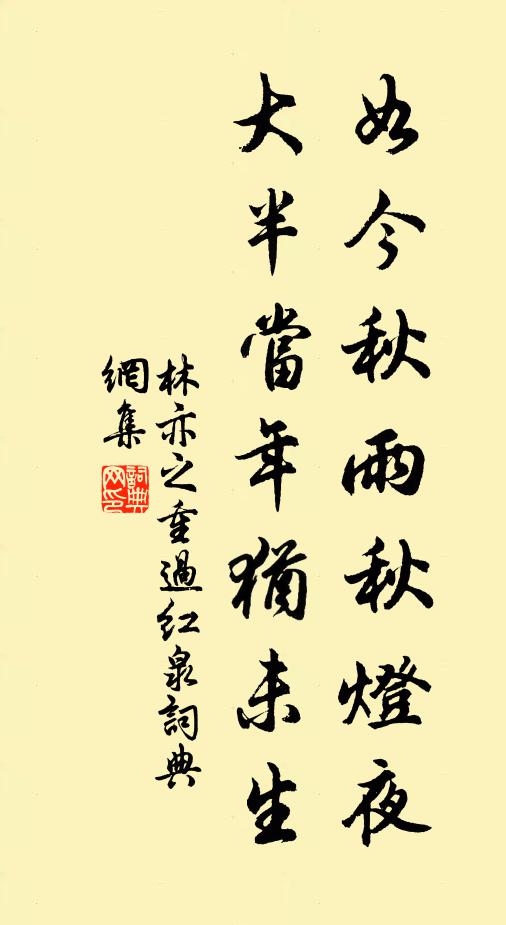 如今秋雨秋燈夜
大半當年猶未生
林亦之重過紅泉詞典
網集
詞典網印